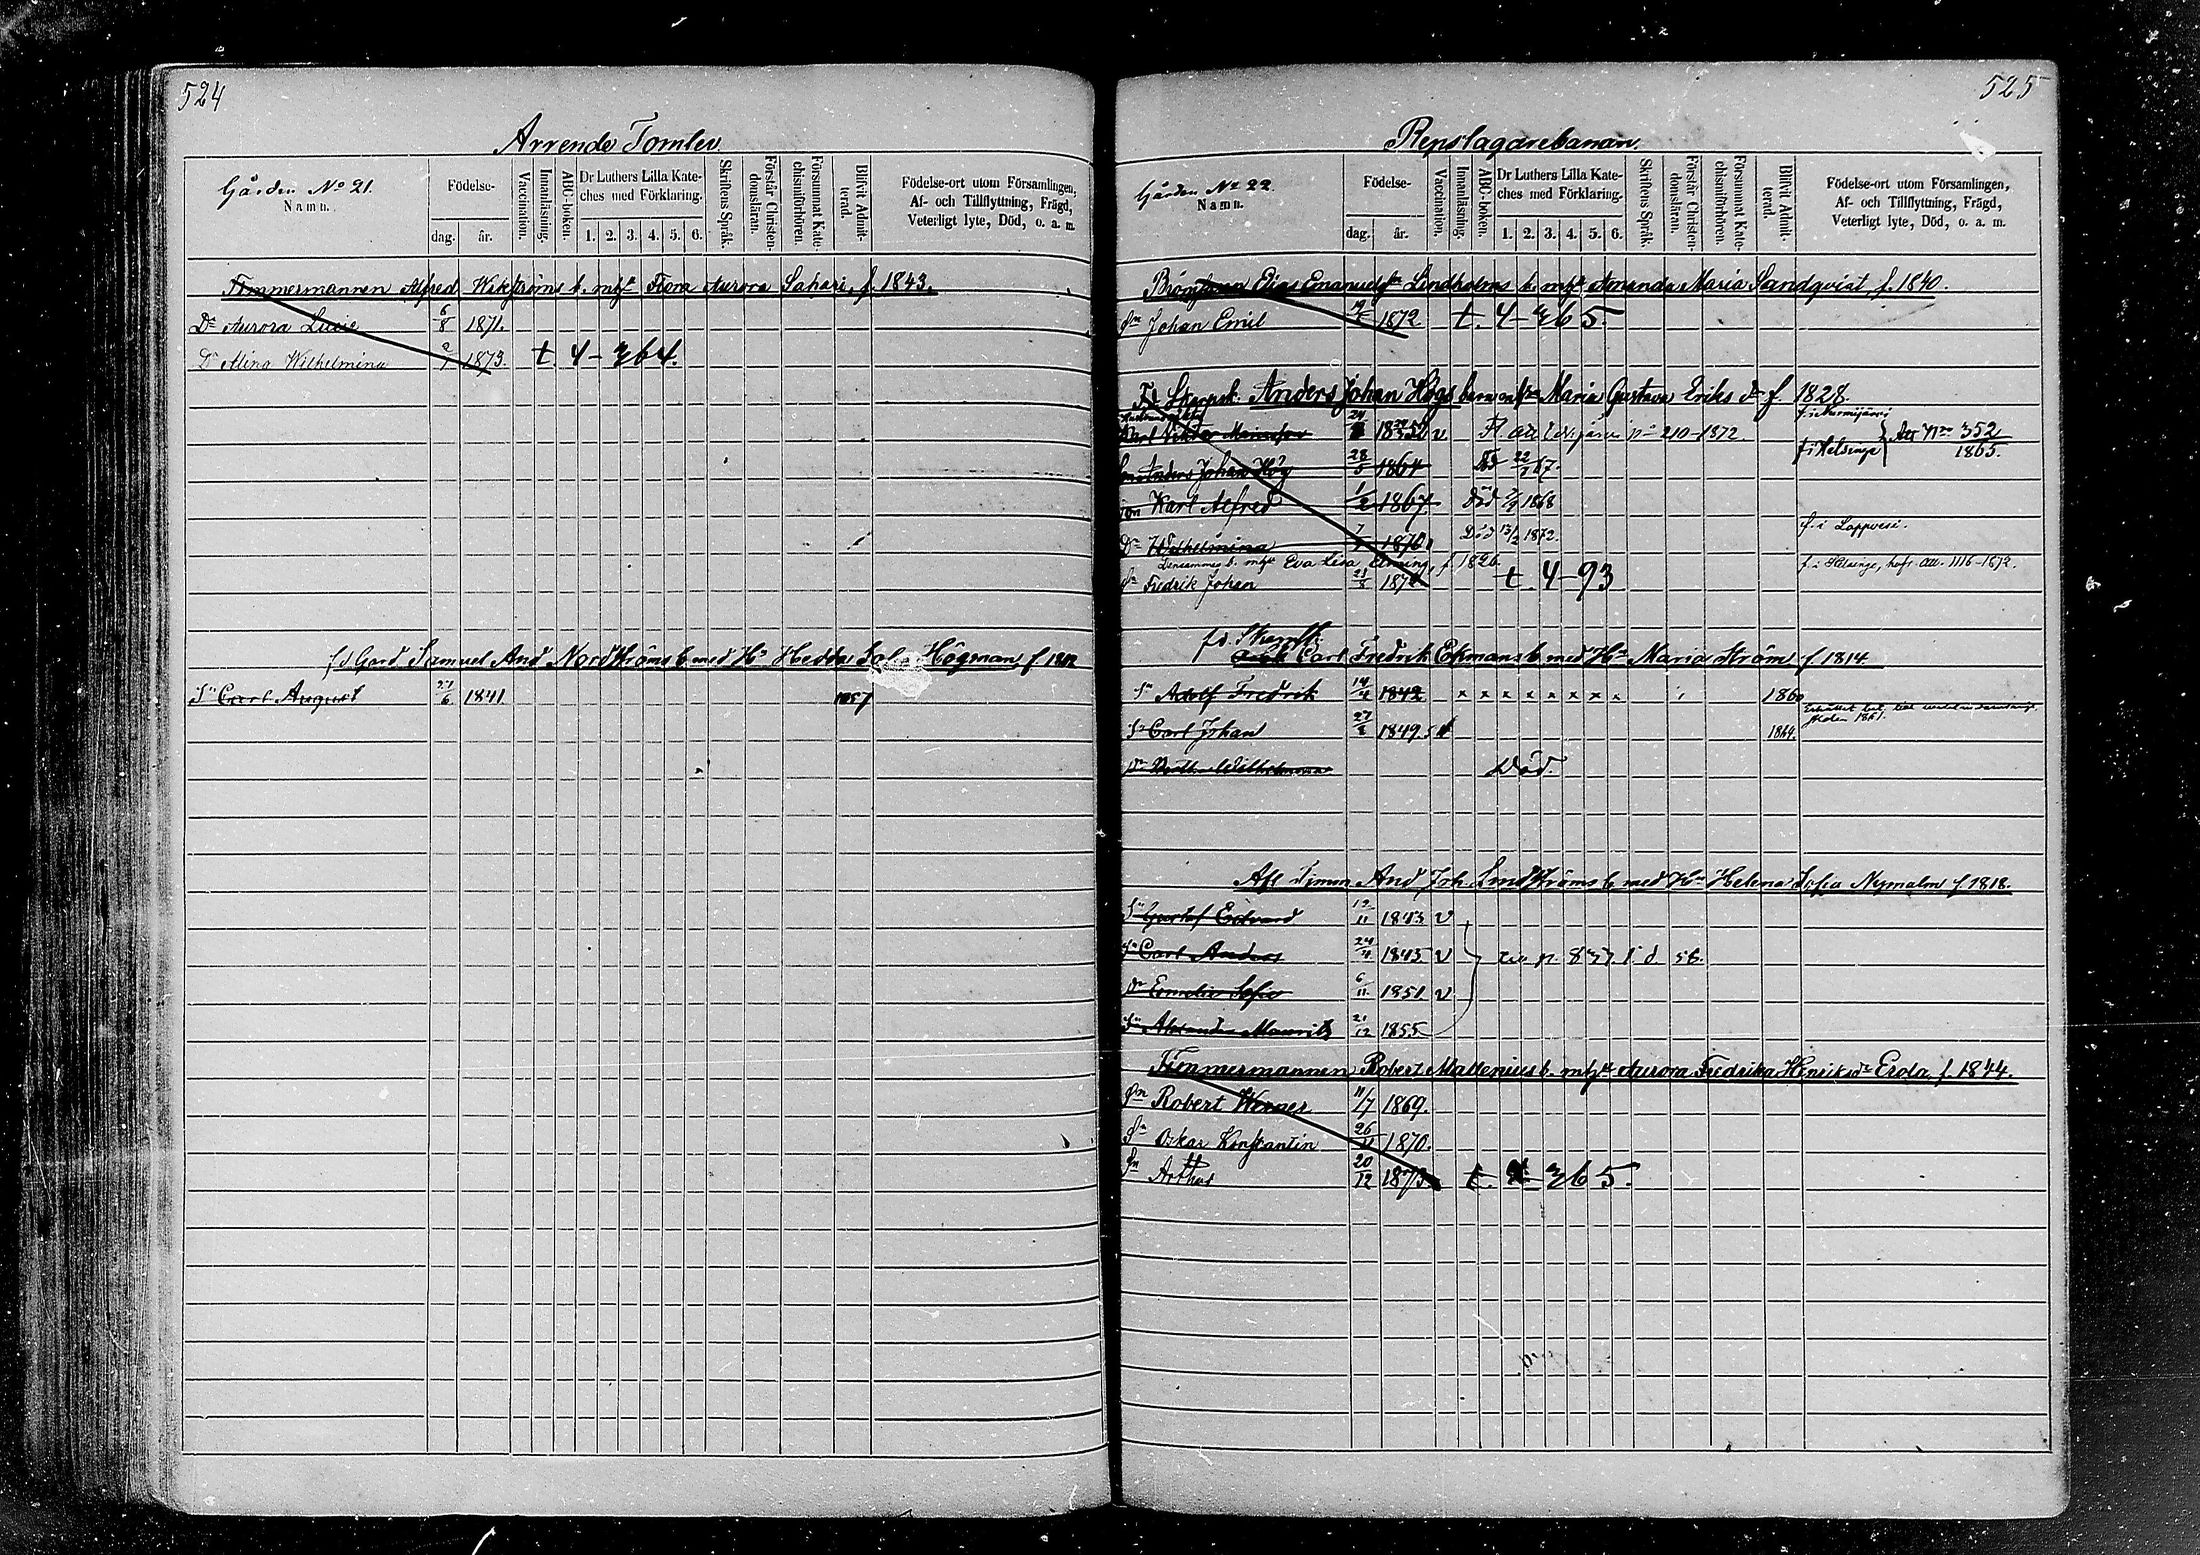 524
Arrende Tomter.
Gården No 21.
Namn.
Födelse-
dag. år.
Vaccination.
Innanläsning.
ABC-boken.
Dr Luthers Lilla Kate-
ches med Förklaring.
1. 2. 3. 4. 5. 6.
Skriftens Språk.
Förstår Christen-
domsläran.
Försummat Kate-
chismiförhören.
Blifvit Admit-
terad.
Födelse-ort utom Församlingen,
Af- och Tillflyttning, Frägd,
Veterligt lyte, Död, o. a. m.
Timmermannen Alfred Wikströms b. m. h. Flora Aurora Sahari, f. 1843.
Dr Aurora Lucie 6/8 1871.
Dr Alina Wilhelmina 2/1 1873. t. 4-364.
fd Gard Samuel And Nordströms b med Hu Hedda Högman f
Sn Carl August 27/6 1841 1857
525
Repslagarebanan.
Gården No 22.
Namn.
Födelse-
dag. år.
Vaccination.
Innanläsning.
ABC-boken.
Dr Luthers Lilla Kate-
ches med Förklaring.
1. 2. 3. 4. 5. 6.
Skriftens Språk.
Förstår Christen-
domsläran.
Försummat Kate-
chismiförhören.
Blifvit Admit-
terad.
Födelse-ort utom Församlingen,
Af- och Tillflyttning, Frägd,
Veterligt lyte, Död, o. a. m.
Elias Emanuel Lindholms b. m. h. Amanda Maria Sandqvist f. 1840.
Sn Johan Emil 1872 t. 4-365.
Fd Skarpsk. Anders Johan Högs barn m. h. Maria Gustava Eriks dr f. 1828.
f. i Nurmijärvi
Karl Viktor 1852 v 210-1872.
f. i Helsinge Att No 352
1865.
Sn Anders Johan Hög 28/5 1864 Död 22/1 67.
Son Karl Alfred 1/2 1867 Död 1868
f. i Lappvesi.
Dr Wilhelmina 7 1870 Död 13/2 1872.
Densammes b. m. h. Eva Lisa f. 1826. f. i Helsinge, hofr. Att. 1116-1872.
Sn Fredrik Johan 21/8 187 t. 4-93
fd. Skarpsk.
Carl Fredrik Ekmans b med Hu Maria Ström f. 1814
Sn Adolf Fredrik 14/4 1842 x x x x x x x x 1860
1861.
Sn Carl Johan 27 1849 1869.
Wilhelmina Död.
Afl Timm And Joh Lindströms b med Hu Helena Sofia Nymalm f. 1818.
Sn Gustaf Edvard 12/11 1843 v
Sn Carl Anders 24/4 1845 v p. 837 l. d. 56.
Dr Emelie Sofie 6/11 1851 v
Sn Alexander Maurits 21/12 1855
Timmermannen Robert Mattenius b. m. h. Aurora Fredrika Henriksdr Erola f. 1844.
Sn Robert Werner 11/7 1869.
Sn Oskar Konstantin 26/11 1870.
Sn Arthur 20/12 1873 t. 4-365.